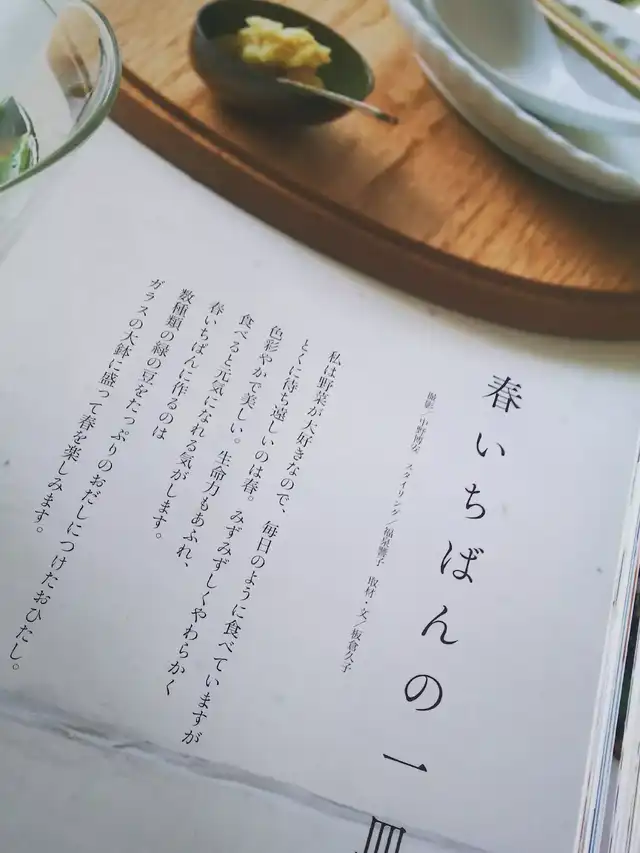 春いちばんの一皿
撮影／中野博安　スタイリング／福泉響子　取材・文／板倉久子
私は野菜が大好きなので、毎日のように食べていますが
とくに待ち遠しいのは春。みずみずしくやわらかく
色彩やかで美しい。生命力もあふれ、
食べると元気になれる気がします。
春いちばんに作るのは
数種類の緑の豆をたっぷりのおだしにつけたおひたし。
ガラスの大鉢に盛って春を楽しみます。